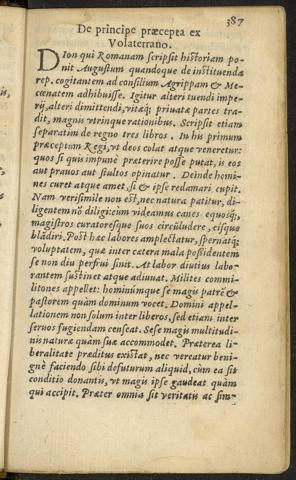 387
De principe præcepta ex
Volaterrano.
Dion qui Romanam scripsit historiam po-
nit Augustum quandoque de instituenda
rep. cogitantem ad consilium Agrippam & Me-
cœnatem adhibuisse. Igitur alteri tuendi impe-
rij, alteri dimittendi, vitæq; priuatæ partes tra-
dit, magnis vtrinque rationibus. Scripsit etiam
separatim de regno tres libros. In his primum
præceptum Regi, vt deos colat atque veneretur:
quos si quis impunè præterire posse putat, is eos
aut prauos aut stultos opinatur. Deinde homi-
nes curet atque amet, si & ipse redamari cupit.
Nam verisimile non est, nec natura patitur, di-
ligentem nõ diligi: cùm videamus canes equosq;,
magistros curatoresque suos circũdere, eisque
blãdiri. Post hæc labores amplectatur, spernatq;
voluptatem, quæ inter cætera mala possidentem
se non diu perfrui sinit. At labor diutius labo-
rantem sustinet atque adiuuat. Milites commi-
litones appellet: hominúmque se magis patrẽ &
pastorem quàm dominum vocet. Domini appel-
lationem non solum inter liberos, sed etiam inter
seruos fugiendam censeat. Sese magis multitudi-
nis naturæ quàm suæ accommodet. Præterea li-
beralitate præditus existat, nec vereatur beni-
gnè faciendo sibi defuturum aliquid, cùm ea sit
conditio donantis, vt magis ipse gaudeat quàm
qui accipit. Præter omnia sit veritatis ac sim-